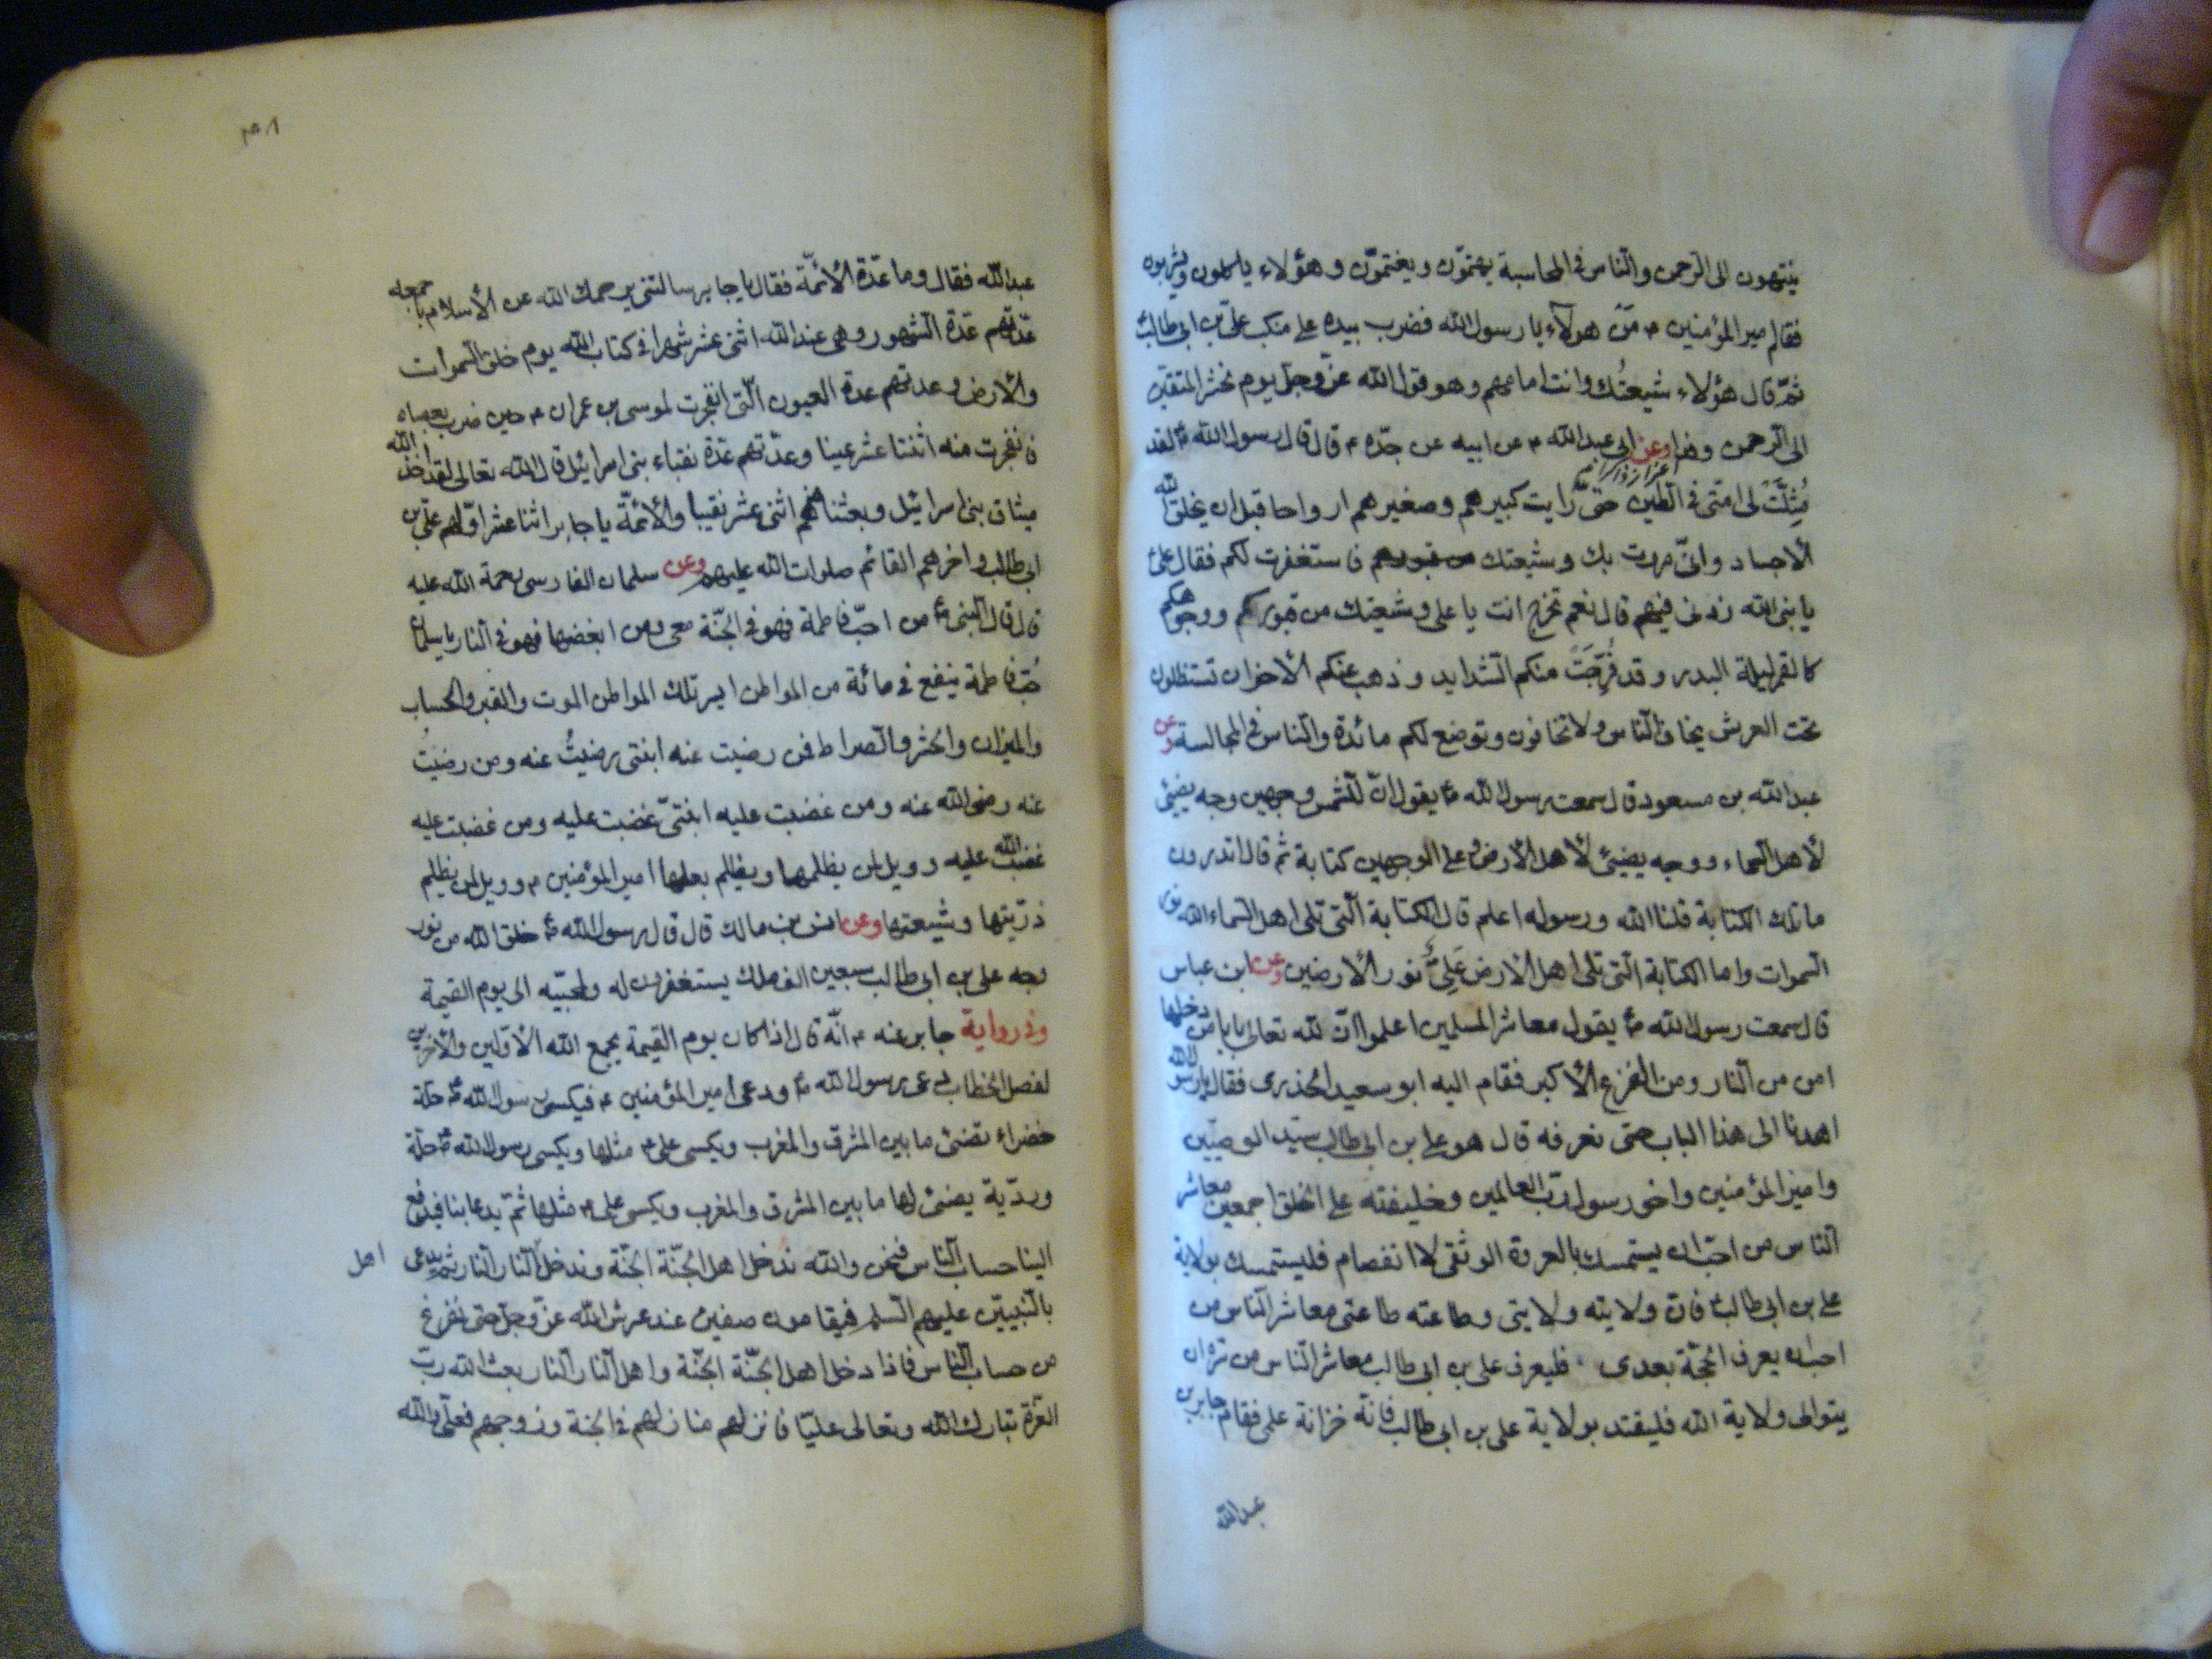 ينتهون الى الرحمن والناس في المحاسبة يهتمّون ويغتمّون وهؤلاء ياكلون ويشربون
فقال امير المؤمنين ع من هولآء يا رسول الله فضرب بيده على منكب علي بن ابي طالب
ثمّ قال هؤلاء شيعتُك وانت امامهم وهو قول الله عزّ وجلّ يوم نحشر المتقين
الى الرحمن وفدا وعن ابي عبدالله ع عن ابيه عن جدّه ع قال قال رسول الله ص لقد
مُثِلَّتْ لى امّتى في الطين حتى رايت كبيرهم وصغيرهم ارواحا قبل ان يخلق الله
الاجساد وانّى مررت بك وشيعتك فاستغفرت لكم فقال على
يا نبى الله زدنى فيهم قال نعم تخرج انت يا على وشيعتك من قبوركم ووجوهكم
كالقمر ليلة البدر وقد فُرِّجَتْ منكم الشدايد وذهب عنكم الاحزان تستظلون
تحت العرش يخاف الناس ولا تخافون وتوضع لكم مائدة والناس في المجالسة وعن
عبدالله بن مسعود قال سمعت رسول الله ص يقول انّ للشمس وجهين وجه يضيئ
لأهل السماء ووجه يضيئ لأهل الأرض وعلى الوجهين كتابة ثم قال اتدرون
ما تلك الكتابة قلنا الله ورسوله اعلم قال الكتابة الّتى تلى اهل السماء الله نور
السموات واما الكتابة الّتى تلى اهل الارض عَلِىٌّ نور الأرضين وعن ابن عباس
قال سمعت رسول الله ص يقول معاشر المسلمين اعلموا انّ لله تعالى بابا من دخلها
امن من النار ومن الفزع الأكبر فقام اليه ابو سعيد الخدرى فقال يا رسول الله
اهدنا الى هذا الباب حتى نعرفه قال هو على بن ابى طالب سيّد الوصيّين
وامير المؤمنين واخى رسول ربّ العالمين وخليفته على الخلق اجمعين معاشر
النّاس من احبّ ان يستمسك بالعروة الوثقى لا انفصام فليستمسك بولاية
على بن ابى طالب فان ولايته ولايتى وطاعته طاعتى معاشر الناس من
احب ان يعرف الحجّة بعدى فليعرف على بن ابى طالب معاشر الناس من
يتوالى ولاية الله فليقتد بولاية على بن ابى طالب فانّه خزانة علمى فقام جابر بن
عبدالله
عبدالله فقال وما عدّة الأئمّة فقال يا جابر سالتنى يرحمك الله عن الأسلام باجمعه
عدّتهم عدّة الشهور وهى عند الله اثنى عشر شهرا في كتاب الله يوم خلق السموات
والأرض وعدتهم عدة العيون الّتى انفجرت لموسى بن عمران ع حين ضرب بعصاه
فانفجرت منه اثنتا عشر عينا وعدّتهم عدّة نقباء بنى اسرائيل قال الله تعالى لقد اخذ الله
ميثاق بنى اسرائيل وبعثنا منهم اثنى عشر نقيبا والأئمّة يا جابر اثنا عشر اوّلهم على بن
ابى طالب واخرهم القائم صلوات الله عليهم وعن سلمان الفارسى رحمة الله عليه
قال قال النبى ص من احبّ فاطمة فهو في الجنّة معى ومن ابغضها فهو في النار يا سلمان
حبّ فاطمة ينفع في مائة من المواطن ايسر تلك المواطن الموت والقبر والحساب
والميزان والحشر والصراط فمن رضيت عنه ابنتى رضيتُ عنه ومن رضيتُ
عنه رضى الله عنه ومن غضبت عليه ابنتى غضبت عليه ومن غضبت عليه
غضب الله عليه وويل لمن يظلمها ويظلم بعلها امير المؤمنين ع وويل لمن يظلم
ذرّيتها وشيعتها وعن انس بن مالك قال قال رسول الله ص خلق الله من نور
وجه على بن ابى طالب سبعين الف ملك يستغفرون له ولمحبّيه الى يوم القيمة
وفى رواية جابر عنه ع انّه قال اذا كان يوم القيمة يجمع الله الأوّلين والأخرين
لفصل الخطاب دعى رسول الله ص ودعى امير المؤمنين ع فيكسى رسول الله ص حلّة
خضراء تضئ ما بين المشرق والمغرب ويكسى على ع مثلها ويكسى رسول الله ص حلّة
وردّية يضئ لها ما بين المشرق والمغرب ويكسى على ع مثلها ثمّ يدعا بنا فيدفع
الينا حساب الناس فنحن والله ندخل اهل الجنّة الجنّة وندخل النار النار ثم يدعى
اهل
بالنبيّين عليهم السلم فيقامون صفين عند عرش الله عزّ وجلّ حتى نفرغ
من حساب الناس فاذا دخل اهل الجنّة الجنّة واهل النار النار بعث الله ربّ
العزّة تبارك الله وتعالى عليّا فانزلهم منازلهم في الجنة وزوجهم فعلىّ والله